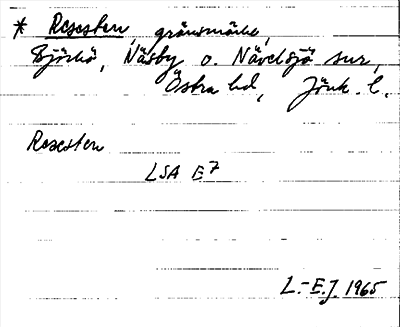 * Rosesten, gränsmärke,
Björkö, Näsby o. Nävelsjö snr,
Östra hd, Jönk. l.
Rosesten
LSA E7
L.-E.J. 1965